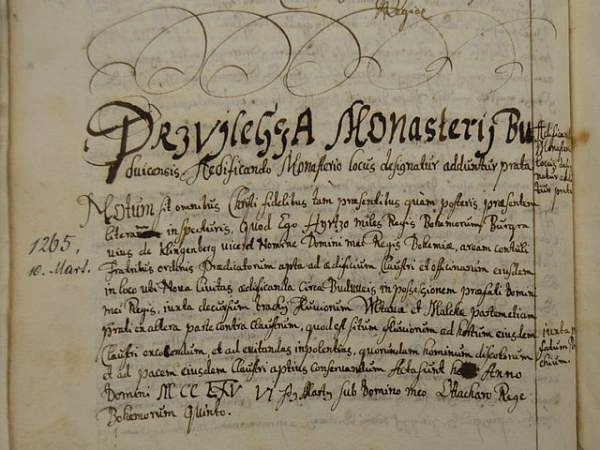 Regiae
PRZVJLEHGJA MONASTERIJ BU
duicensis Aedificando Monasterio locus designatur adduntur prata
NOTUM sit omnibus Christi fidelibus tam praesentibus quam posteris praesentem
literam inspecturis, Quod Ego Hyrtzo miles Regis Bohemorum Burgra
uius de Klingenberg vice et Nomine Domini mei Regis Bohemiae, aream contuli
1265.
10. Mart.
Fratribus ordinis Praedicatorum apta ad aedificium Claustri et officinarum eiusdem
in loco ubi Nova Civitas aedificanda circa Budwois in possessionem praefati Domini
mei Regis, iuxta decursum Fluviorum Wltauae et Malcze
prati ex altera parte contra claustrum, quod est situm fluviorum ad hortum eiusdem
Claustri excolendum, et ad evitandas insolentias, quorundam hominum discolorum
et ad pacem eiusdem Claustri aptius conservandum Acta sunt Anno
Domini MCCLXV VI Martij sub Domino meo Ottachary Rege
Bohemorum Quinto.